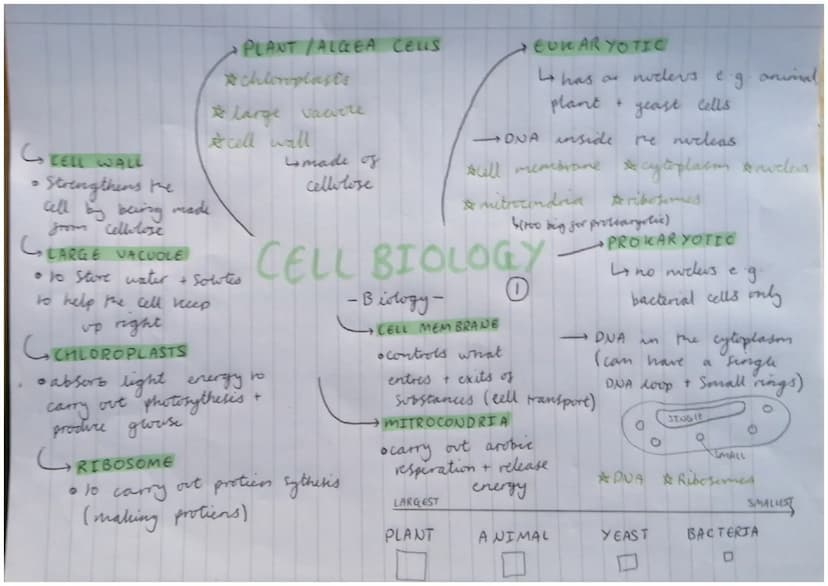 PLANT/ALGEA CELLS
☆chloroplasts
☆large vacuole
☆cell wall
↳made of
cellulose
EUKARYOTIC
↳has a nucleus e.g animal
plant + yeast cells
→DNA inside the nucleus
☆cell membrane ☆cytoplasm ☆nucleus
☆mitrocondria ☆ribosomes
↳(too big for prokaryotic)
CELL WALL
• Strengthens the
cell by being made
from cellulose
LARGE VACUOLE
• to store water + solutes
to help the cell keep
up right
CHLOROPLASTS
• absorb light energy to
carry out photosythesis +
produce gluose
RIBOSOME
• to carry out protien sythesis
(making protiens)
CELL BIOLOGY
①
-Biology-
CELL MEMBRANE
•controls what
entres + exits of
substances (cell transport)
MITROCONDRIA
•carry out arobic
respiration + release
energy
PROKARYOTIC
↳no nucleus e.g.
bacterial cells only
→DNA in the cytoplasm
(can have a single
DNA loop + small rings)
SINGLE
SMALL
☆DNA ☆Ribosomes
LARGEST SMALLEST
PLANT ANIMAL YEAST BACTERIA